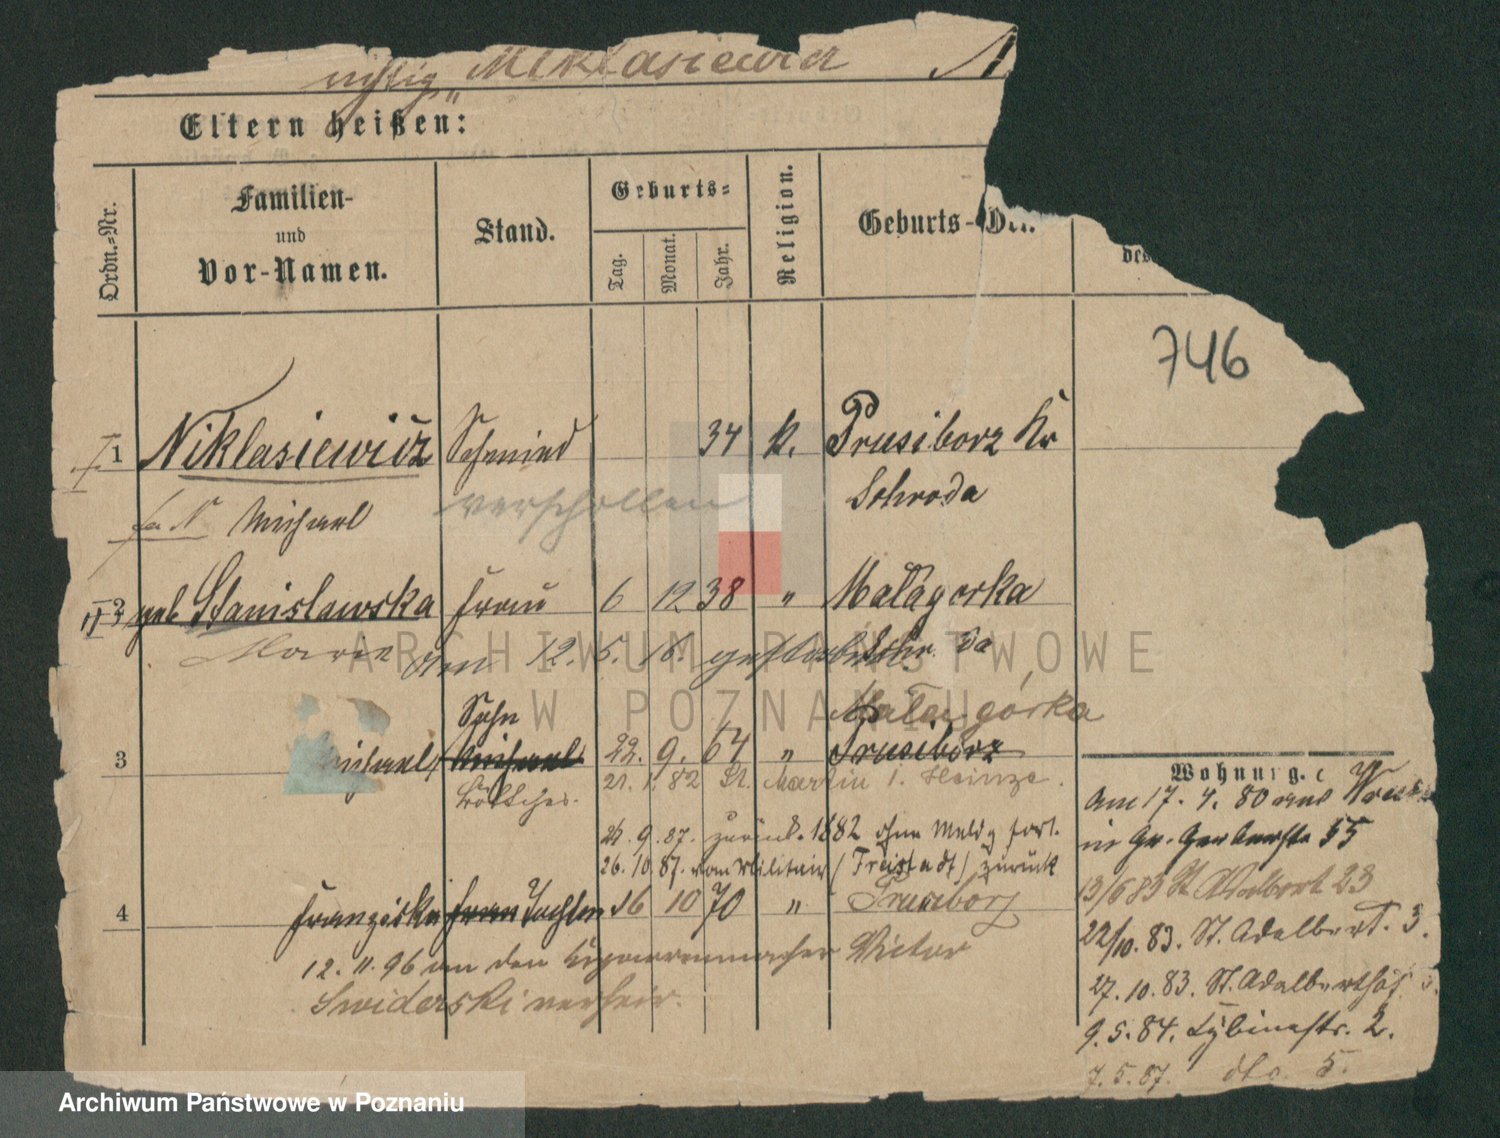 richtig „Miklasiewicz
Eltern heißen:
Ordn.=Nr.
Familien-
und
Vor-Namen.
Stand.
Geburts=
Tag.
Monat.
Jahr.
Religion.
Geburts-Ort.
des
746
1 Niklasiewicz Schmied 34 k. Prusiborz Kr
Michael verschollen Schroda
2 geb Stanislawska Frau 6 12 38 " Malagorka
Marie am 12. 5. 16. gestorben Schr. da
Sohn Malagórka
3 Michael 22. 9. 64 " Prusiborz
Böttcher. 21. 1. 82 St. Martin 1. Heinze.
9. 87. zurück. 1882 ohne Meldg fort.
26. 10. 87. vom Militair (Freistadt) zurück
4 Franziska Frau Tochter 16 10 70 " Prusiborz
12. 11. 96 an den Cigarrenmacher Victor
Swiderski verheir.
Wohnung.
Am 17. 4. 80 aus
in Gr. Gerberstr 55
13/6 83 St Adalbert 23
22/10. 83. St. Adalbert. 3.
27. 10. 83. St. Adalberthof
9. 5. 84. Lybinastr. 2.
7. 5. 87. dto. 5.
ARCHIWUM PAŃSTWOWE
W POZNANIU
Archiwum Państwowe w Poznaniu